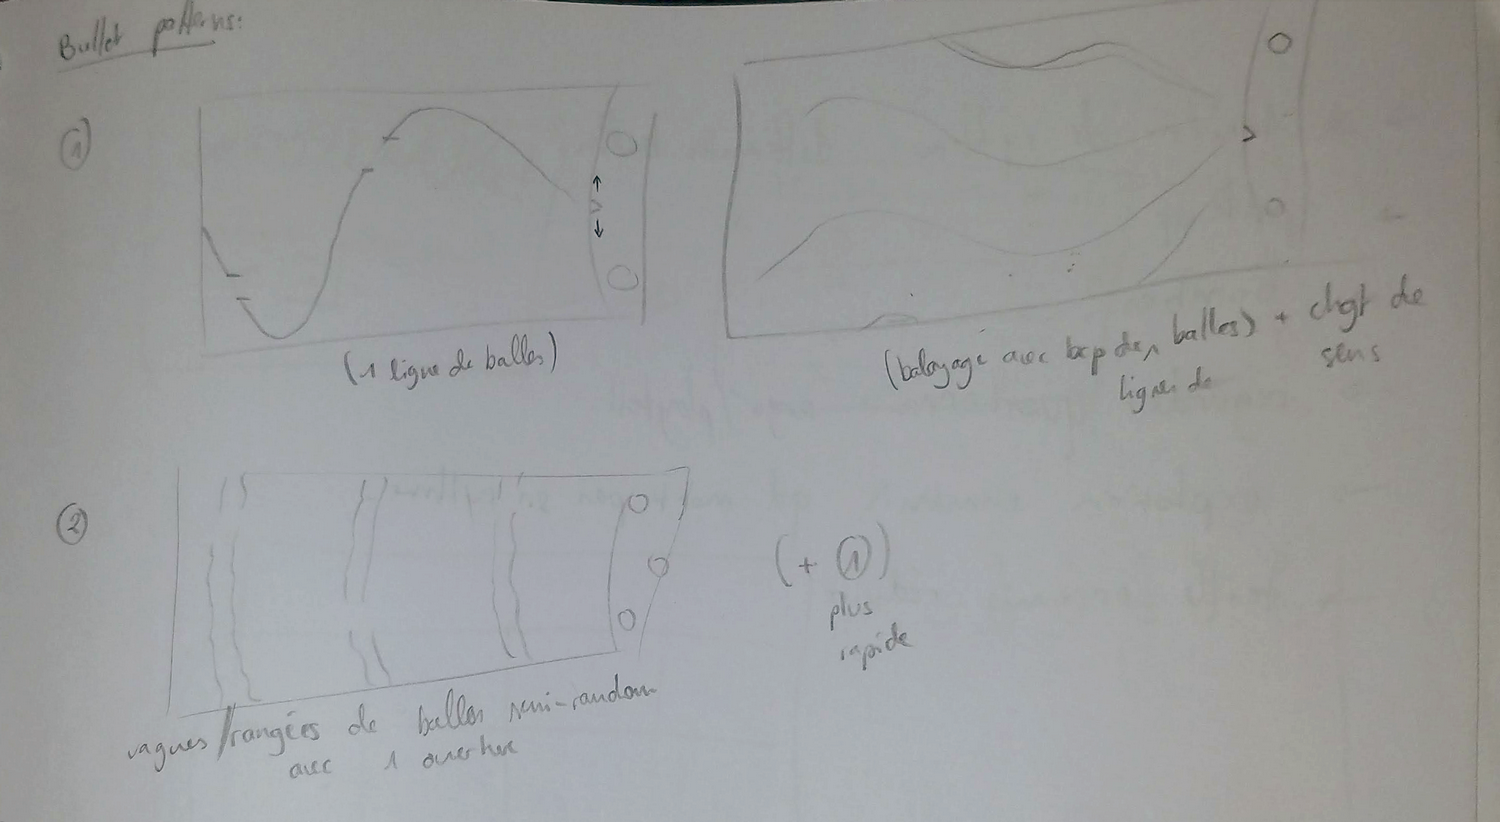 Bullet patterns:
①
(1 ligne de balles)
(balayage avec bcp de lignes de balles) + chgt de
sens
②
(+ ①)
plus
rapide
vagues/rangées de balles semi-random
avec 1 ouverture